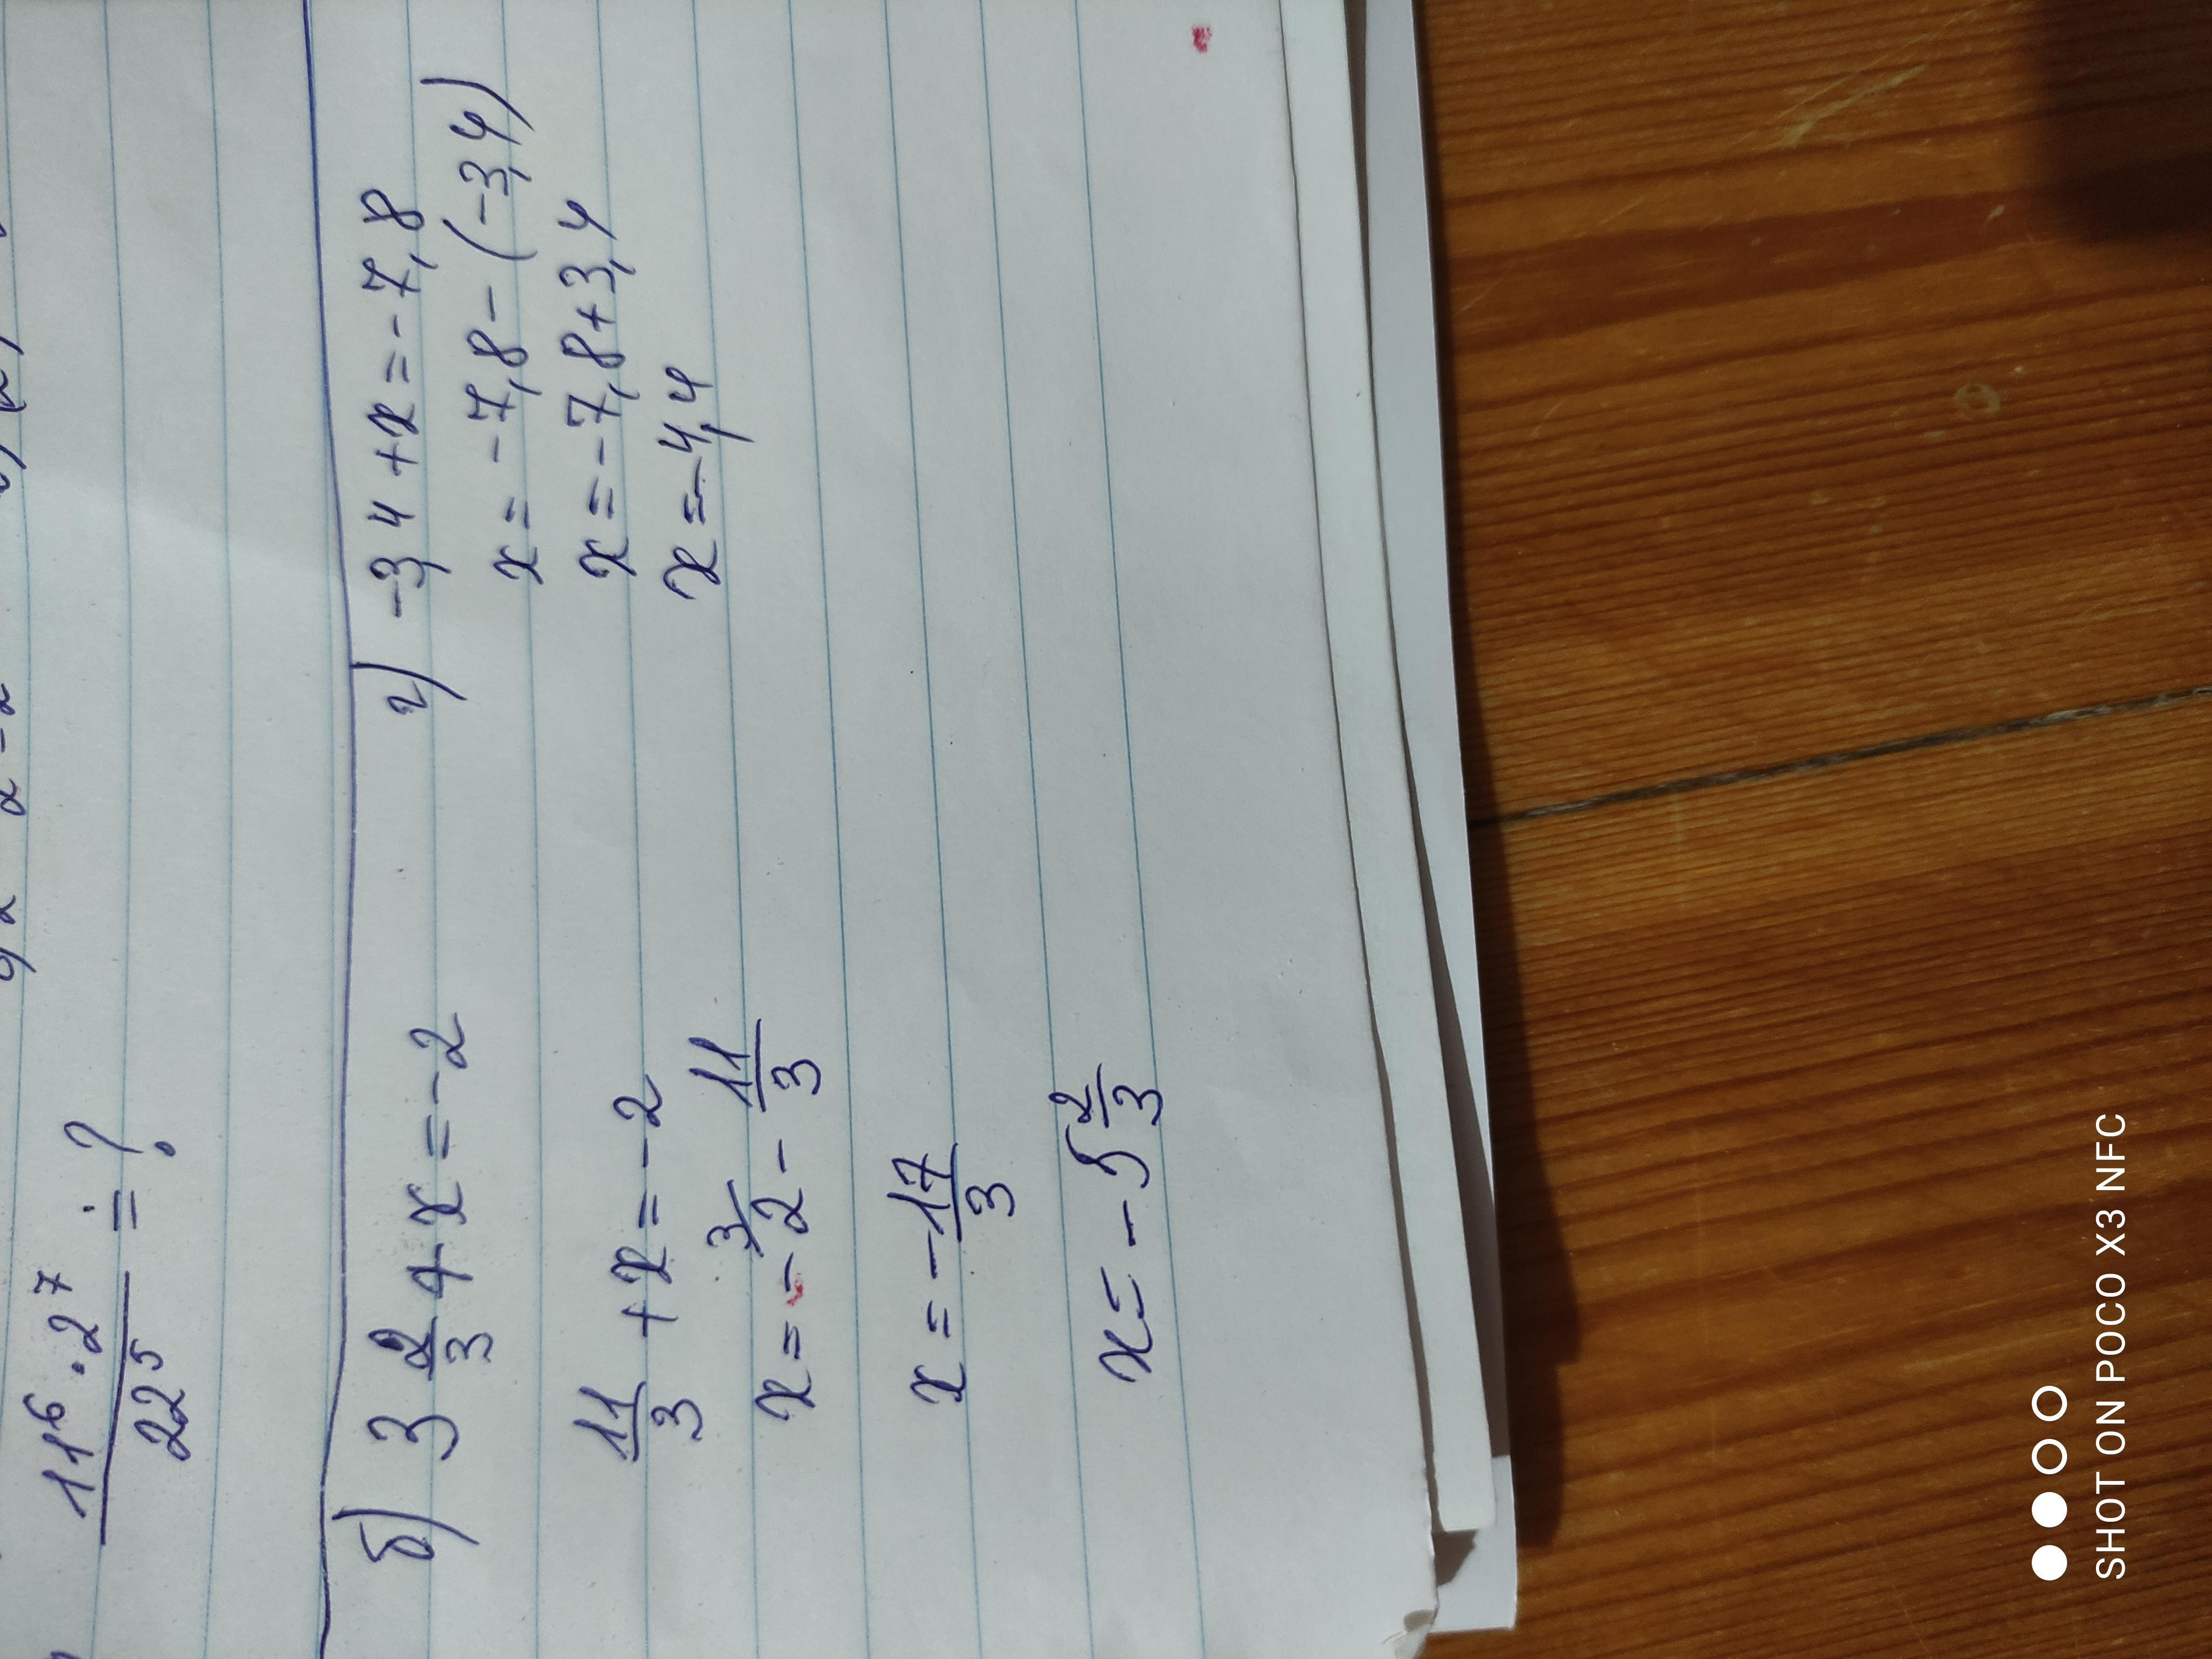 11⁶·2⁷/22⁵ = ?
б) 3 2/3 + x = -2
11/3 + x = -2
x = -2 ³⁄ - 11/3
x = -17/3
x = -5 2/3
г) -3,4 + x = -7,8
x = -7,8 - (-3,4)
x = -7,8 + 3,4
x = -4,4
SHOT ON POCO X3 NFC